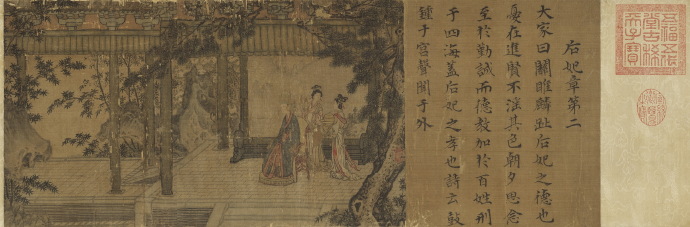 五福五代
堂古稀
天子寶
后妃章第二
大家曰關雎麟趾后妃之德也
憂在進賢不淫其色朝夕思念
至於勤誠而德教加於百姓刑
于四海蓋后妃之孝也詩云鼓
鍾于宮聲聞于外